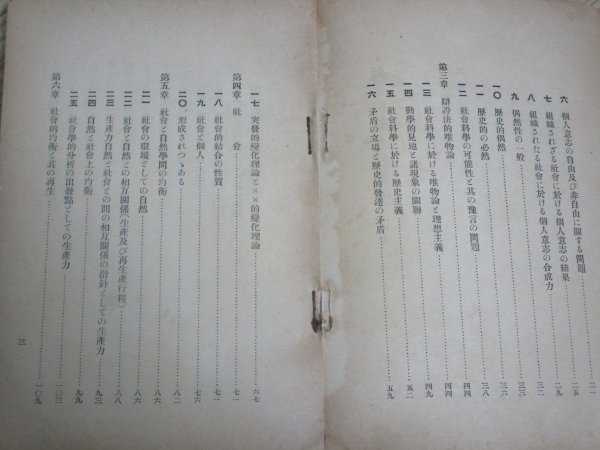 六 個人意志の自由及び非自由に關する問題……二一
七 組織されざる社會に於ける個人意志の結果……二五
八 組織されたる社會に於ける個人意志の合成力……二九
九 偶然性の一般……三二
一〇 歷史的偶然……三六
一一 歷史的の必然……三八
一二 社會科學の可能性と其の豫言の問題……四四
第三章 辯證法的唯物論……四四
一三 社會科學に於ける唯物論と理想主義……四九
一四 動學的見地と諸現象の關聯
一五 社會科學に於ける歷史主義……五九
一六 矛盾の立場と歷史的發達の矛盾
一七 突發的變化理論と××的變化理論……六七
第四章 社會……七一
一八 社會的結合の性質……七一
一九 社會と個人……七六
二〇 形成されつゝある……八二
第五章 社會と自然學間の均衡
二一 社會の環境としての自然……八六
二二 社會と自然との相互關係(生產及び再生產行程)……八八
二三 生產力自然と社會との間の相互關係の指針としての生產力……九三
二四 自然と社會上の均衡……九九
二五 社會學的分析の出發點としての生產力……一〇三
第六章 社會的均衡と其の再生……一〇九
三